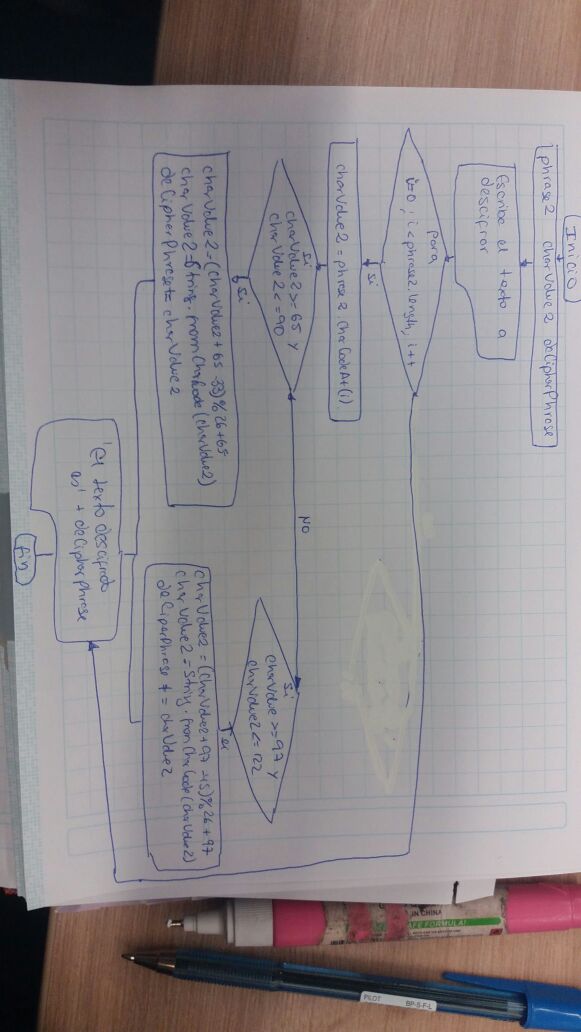 Inicio
phrase2 charValue2 deCipherPhrase
Escribe el texto a
descifrar
para
i=0; i<phrase2.length; i++
Si
charValue2 = phrase2.charCodeAt(i)
Si
charValue2 >= 65 y
charValue2 <= 90
NO
Si
charValue >= 97 y
charValue2 <= 122
Si
charValue2 = (charValue2 + 65 -33) % 26 + 65
charValue2 = String.fromCharCode(charValue2)
deCipherPhrase += charValue2
charValue2 = (charValue2 + 97 -45) % 26 + 97
charValue2 = String.fromCharCode(charValue2)
deCiperPhrase += charValue2
'El texto descifrado
es' + deCipherPhrase
fin
IN CHINA
AFE FORMULA!
PILOT
BP-S-F-L